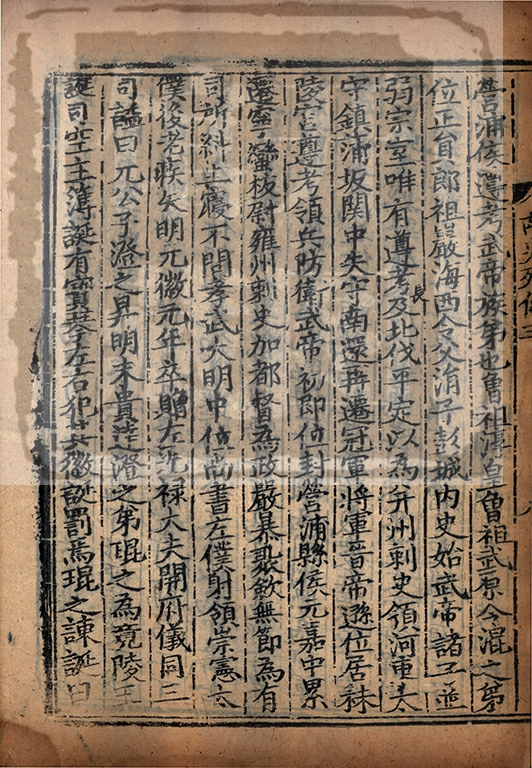 營浦侯遵考武帝族弟也曾祖淳皇曾祖武原令混之弟
位正員郎祖巖海西令父涓子彭城內史始武帝諸子並
長
弱宗室唯有遵考及北伐平定以為并州刺史領河東太
守鎮蒲坂關中失守南還再遷冠軍將軍晉帝遜位居秣
陵宮遵考領兵防衛武帝初即位封營浦縣侯元嘉中累
遷寧蠻校尉雍州刺史加都督為政嚴暴聚斂無節為有
司所糾上寢不問孝武大明中位尚書左僕射領崇憲太
僕後老疾失明元徽元年卒贈左光祿大夫開府儀同三
司謚曰元公子澄之昇明末貴達澄之弟琨之為竟陵王
誕司空主簿誕有寶琴左右犯其徽誕罰焉琨之諫誕曰